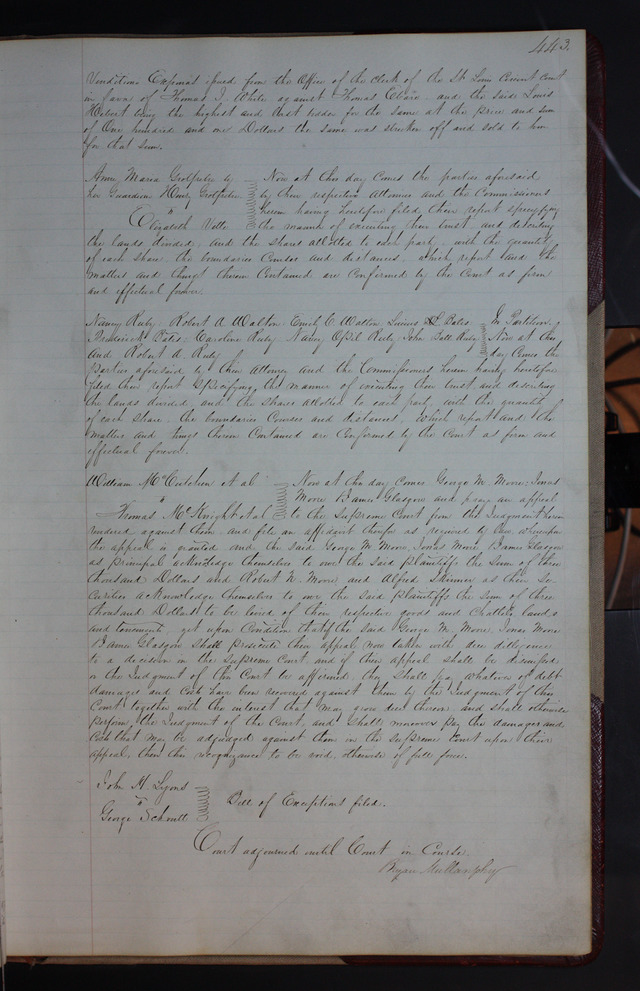 443.
Venditioni Exponas issued from the Office of the Clerk of the St Louis Circuit Court
in favor of Thomas J. White against Thomas and the said Louis
Hebert being the highest and best bidder for the same at the price and sum
of One hundred and one Dollars the same was stricken off and sold to him
for that sum.
Ann Maria by Now at this day comes the parties aforesaid
her Guardian Henry by their respective Attornies and the Commissioners
vs herein having heretofore filed their report specifying
Elizabeth the manner of executing their trust, and describing
the lands divided, and the shares allotted to each party, with the quantity
of each share, the boundaries Courses and distances, which report and the
matters and things therein Contained are Confirmed by the Court as firm
and effectual forever.
Nancy Ruby, Robert A Walton, Emily C Walton, Lucius Bates In Partition,
Frederick Bates, Caroline Ruby Nancy Ruby John Ruby Now at this
and Robert A. Ruby day Comes the
Parties aforesaid by their Attorney and the Commissioners herein having heretofore
filed their report Specifying the manner of executing their trust and describing
the lands divided, and the Shares allotted to each party, with the quantity
of each share, the boundaries Courses and distances, Which report and the
matters and things therein Contained are Confirmed by the Court as firm and
effectual forever.
William McCutchen et al Now at this day comes George M. Moore, Jonas
vs Moore James Glasgow and pray an appeal
Thomas McKnight et al to the Supreme Court from the Judgment herein
rendered against them, and file an affidavit therefor as required by law, whereupon
the appeal is granted and the said George M Moore, Jonas Moore James Glasgow
as principal acknowledge themselves to owe the said plaintiffs the Sum of three
thousand Dollars and Robert N. Moore and Alfred Skinner as their Se-
curities acknowledge themselves to owe the said plaintiffs the sum of three
thousand Dollars to be levied of their respective goods and Chattels, lands
and tenements, yet upon Condition that if the said George M. Moore Jonas Moore
James Glasgow shall prosecute their appeal now taken with due diligence
to a decision in the Supreme Court, and if their appeal shall be dismissed
or the Judgment of this Court be affirmed, they Shall pay whatever of debt
damages and Costs have been recovered against them by the Judgment of this
Court together with the interest that may grow due thereon, and shall otherwise
perform the Judgment of the Court, and shall moreover pay the damages and
Costs that may be adjudged against them in the Supreme Court upon their
appeal, then this recognizance to be void, otherwise of full force.
John H. Lyons
vs Bill of Exceptions filed.
George Schnell
Court adjourned until Court in Course.
Bryan Mullanphy